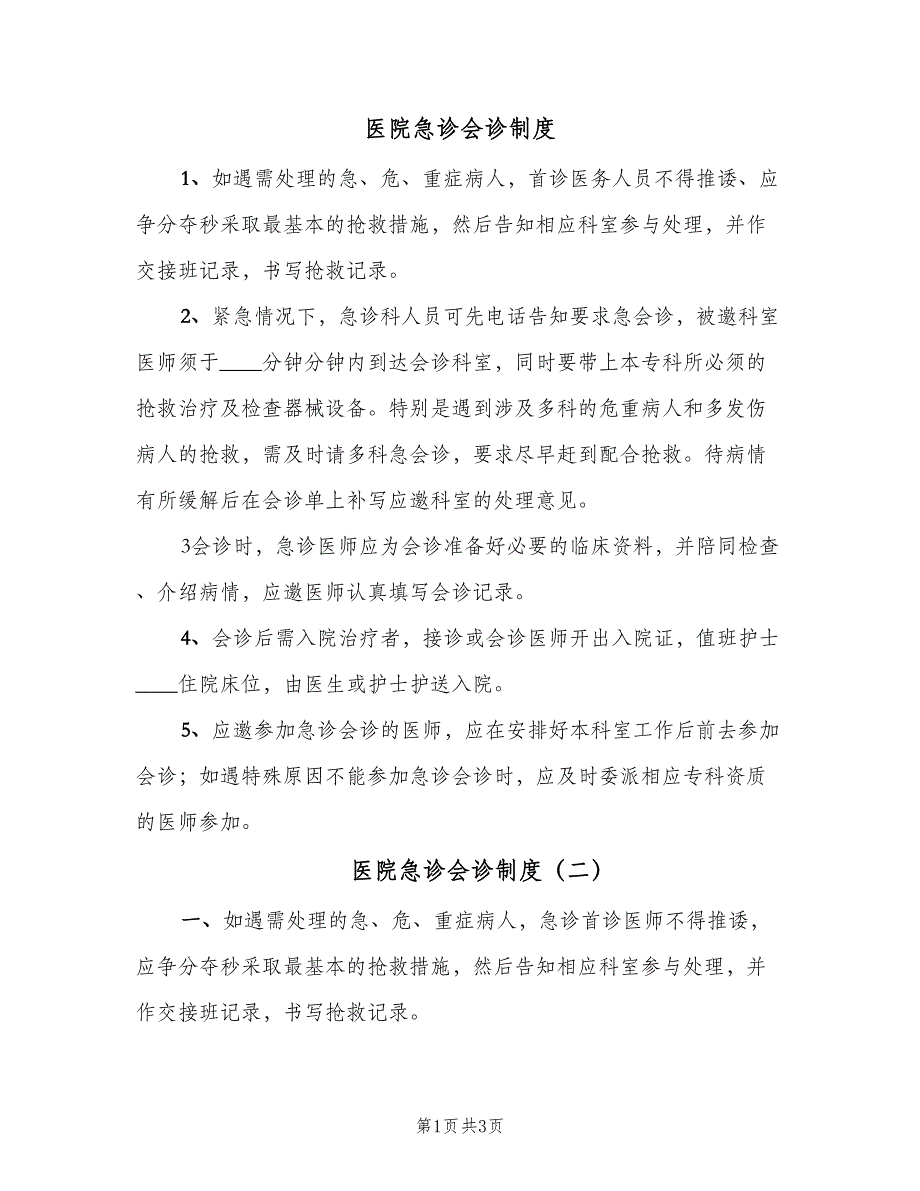 医院急诊会诊制度
1、如遇需处理的急、危、重症病人，首诊医务人员不得推诿、应
争分夺秒采取最基本的抢救措施，然后告知相应科室参与处理，并作
交接班记录，书写抢救记录。
2、紧急情况下，急诊科人员可先电话告知要求急会诊，被邀科室
医师须于____分钟分钟内到达会诊科室，同时要带上本专科所必须的
抢救治疗及检查器械设备。特别是遇到涉及多科的危重病人和多发伤
病人的抢救，需及时请多科急会诊，要求尽早赶到配合抢救。待病情
有所缓解后在会诊单上补写应邀科室的处理意见。
3会诊时，急诊医师应为会诊准备好必要的临床资料，并陪同检查
、介绍病情，应邀医师认真填写会诊记录。
4、会诊后需入院治疗者，接诊或会诊医师开出入院证，值班护士
____住院床位，由医生或护士护送入院。
5、应邀参加急诊会诊的医师，应在安排好本科室工作后前去参加
会诊；如遇特殊原因不能参加急诊会诊时，应及时委派相应专科资质
的医师参加。
医院急诊会诊制度（二）
一、如遇需处理的急、危、重症病人，急诊首诊医师不得推诿，
应争分夺秒采取最基本的抢救措施，然后告知相应科室参与处理，并
作交接班记录，书写抢救记录。
第1页 共3页